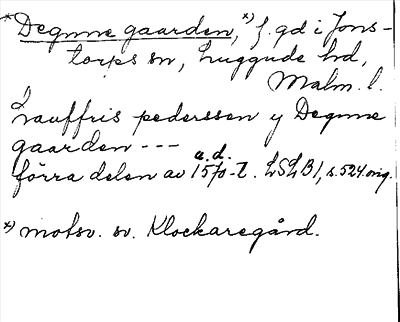 *Degnne gaarden,*) f. gd i Jons-
torps sn, Luggude hd,
Malm. l.
Lauffris pederssen y Degnne
gaarden ---
förra delen av a.d. 1570-t. LSLB1, s.524 orig.
*) motsv. sv. Klockaregård.